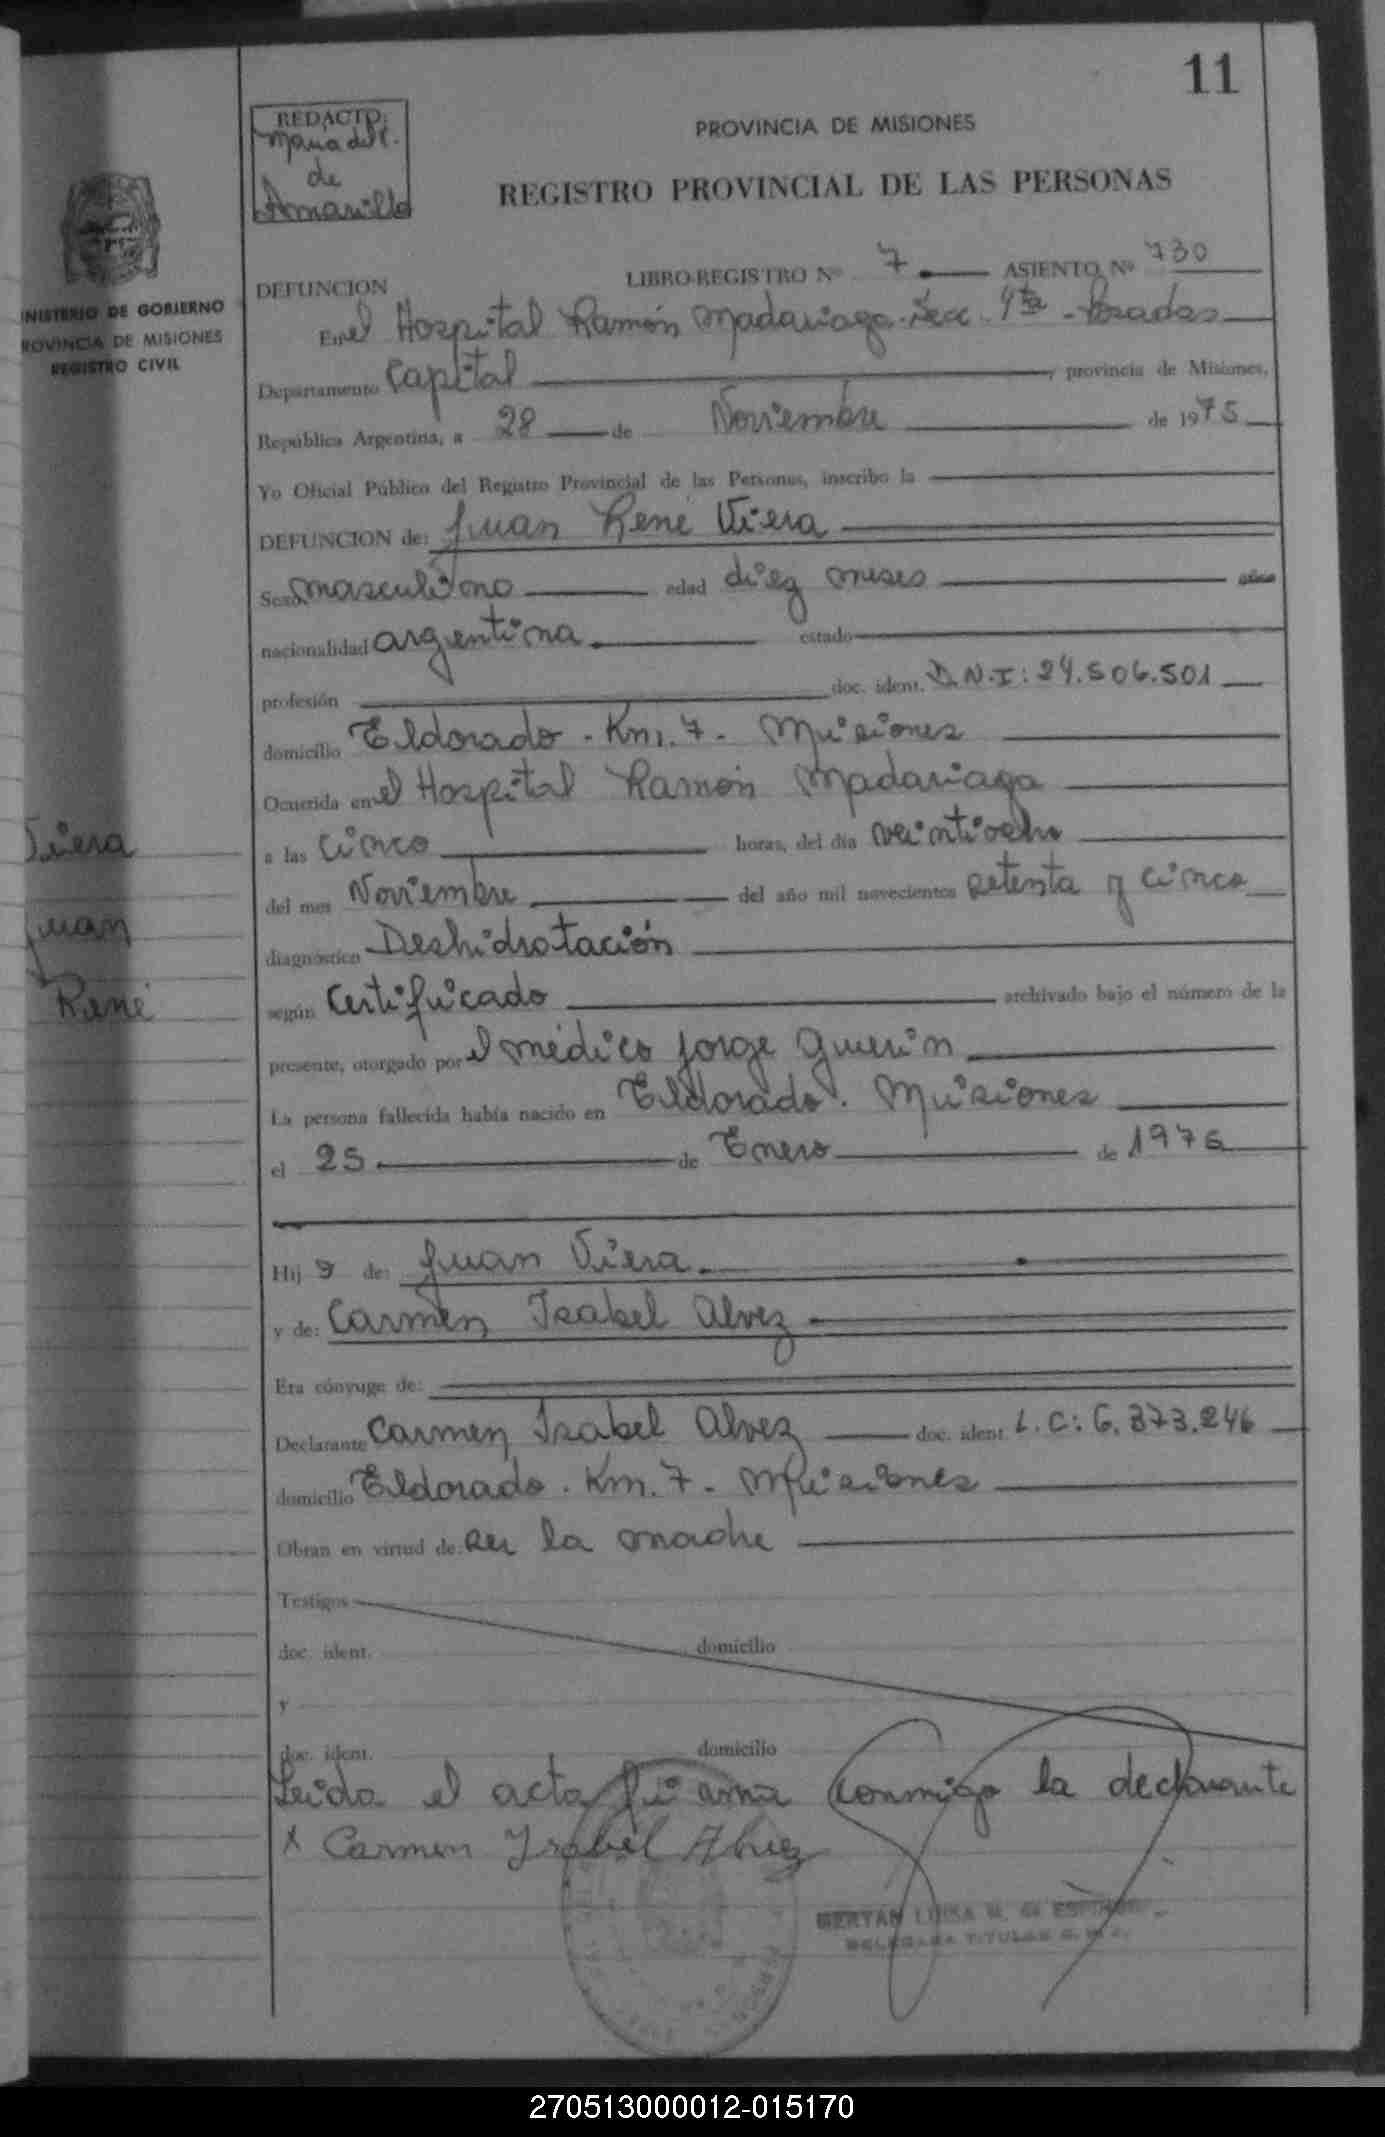 11
REDACTO:
Maria del C.
de
Amarilla
PROVINCIA DE MISIONES
REGISTRO PROVINCIAL DE LAS PERSONAS
MINISTERIO DE GOBIERNO
PROVINCIA DE MISIONES
REGISTRO CIVIL
DEFUNCION LIBRO-REGISTRO Nº 7 ASIENTO Nº 730
En el Hospital Ramón Madariaga. Sec. 4ta - Posadas
Departamento Capital, provincia de Misiones,
República Argentina, a 28 de Noviembre de 1975
Yo Oficial Público del Registro Provincial de las Personas, inscribo la
DEFUNCION de: Juan René Viera
Sexo masculino edad diez meses años
nacionalidad argentina. estado
profesión doc. ident. D.N.I: 24.506.501
domicilio Eldorado. Km. 7. Misiones
Ocurrida en el Hospital Ramón Madariaga
a las cinco horas, del día veintiocho
del mes Noviembre del año mil novecientos setenta y cinco
diagnóstico Deshidratación
según Certificado archivado bajo el número de la
presente, otorgado por el médico Jorge Guerin
La persona fallecida había nacido en Eldorado. Misiones
el 25 de Enero de 1975
Viera
Juan
René
Hij o de: Juan Viera.
y de: Carmen Isabel Alvez
Era cónyuge de:
Declarante Carmen Isabel Alvez doc. ident. L.C: 6.373.246
domicilio Eldorado. Km. 7. Misiones
Obran en virtud de: ser la madre
Testigos
doc. ident. domicilio
y
doc. ident. domicilio
Leida el acta firma conmigo la declarante
x Carmen Ysabel Alvez
BERTAN LUISA M. de
DELEGADA TITULAR
270513000012-015170